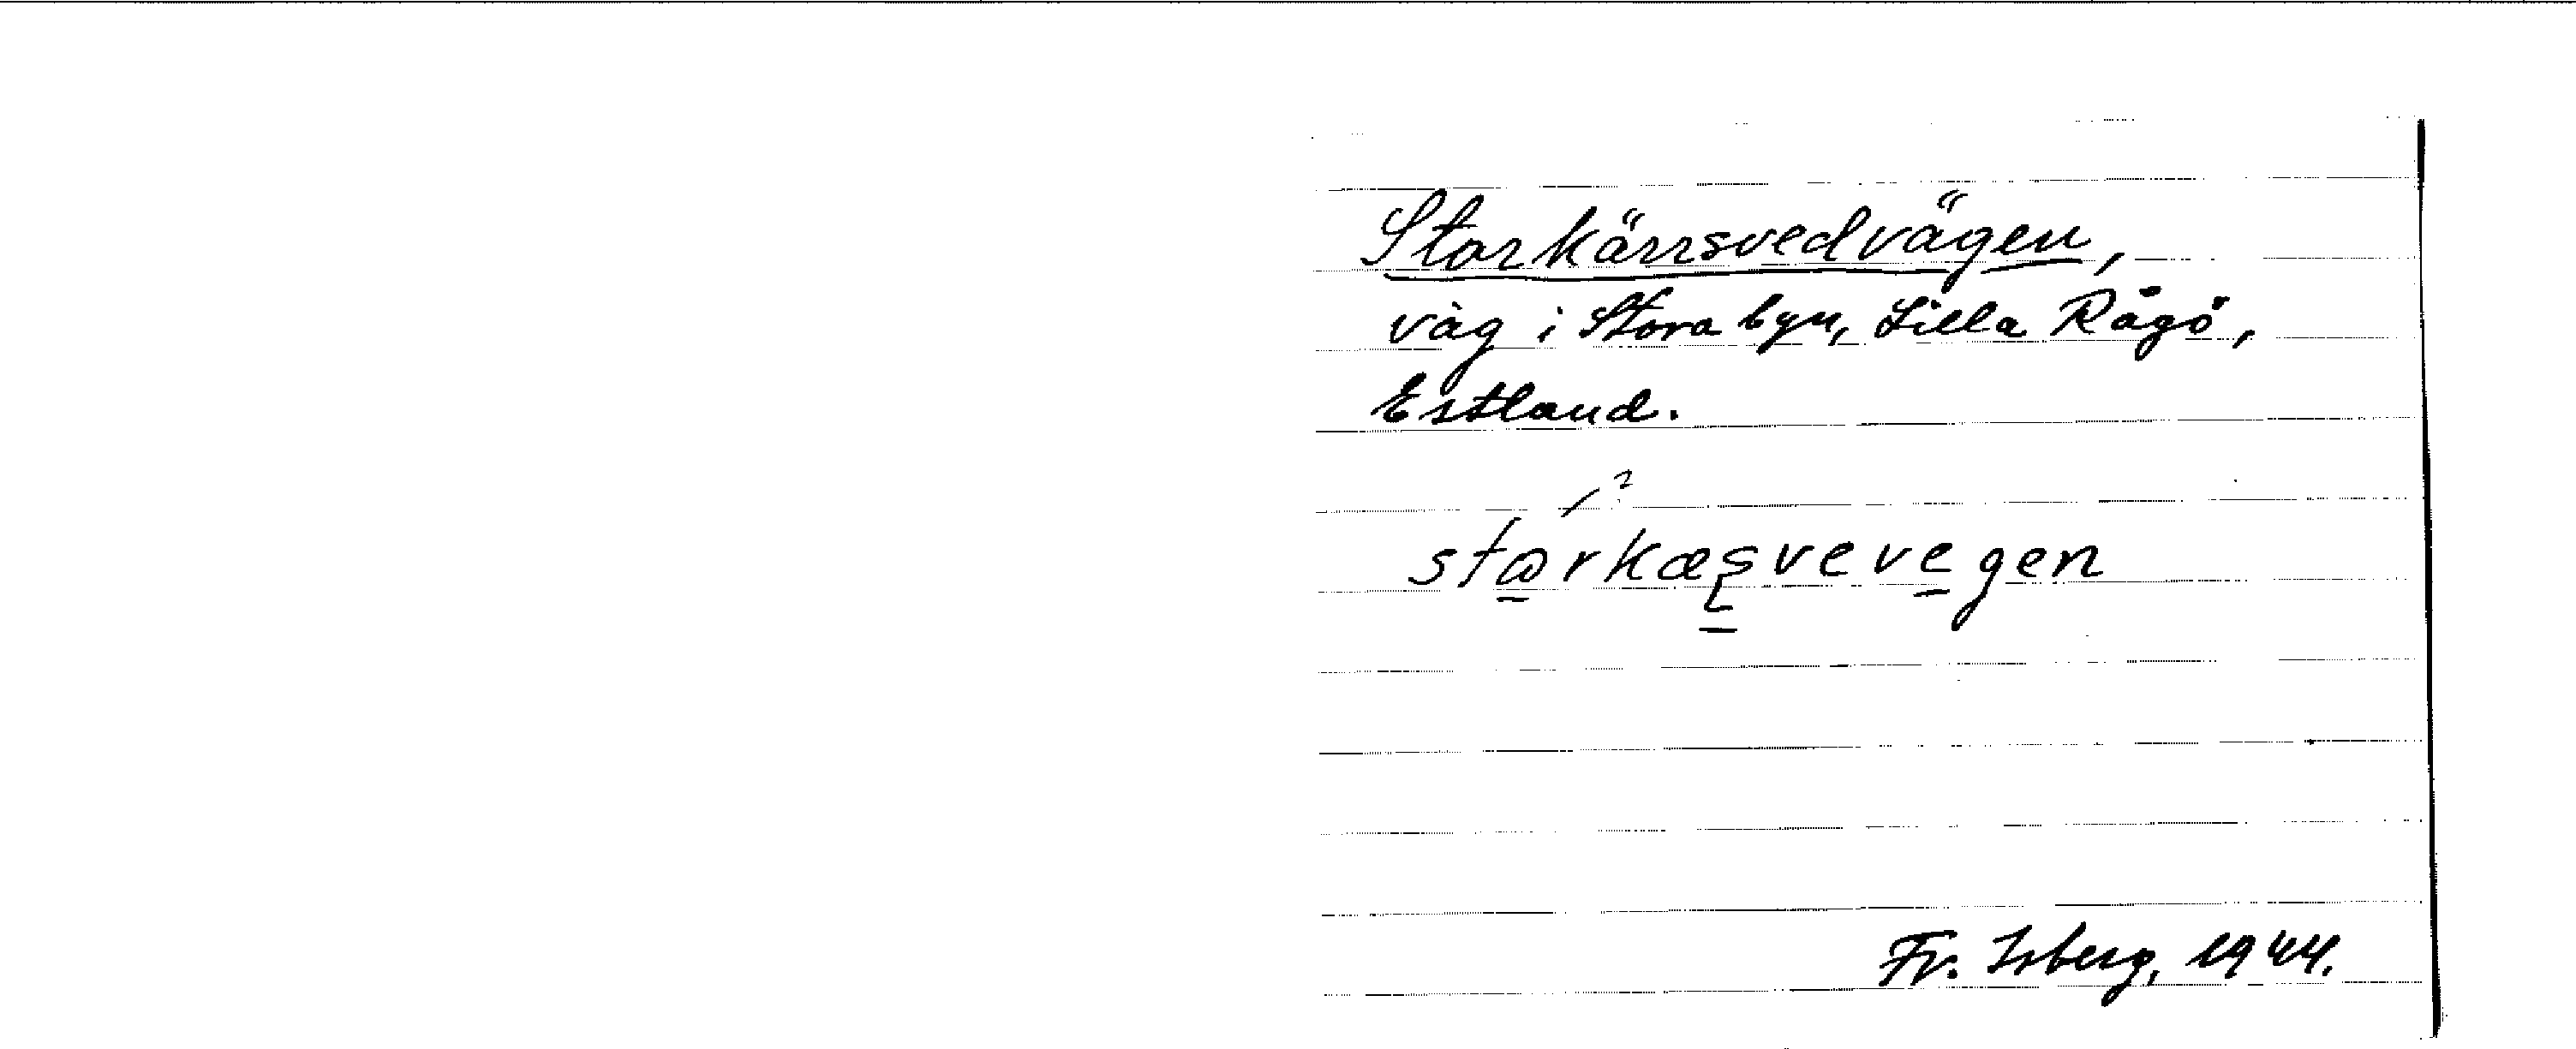 Storkärrsvedvägen,
väg i Stora byn, Lilla Rågö,
Estland.
Fr. Isberg, 1944.